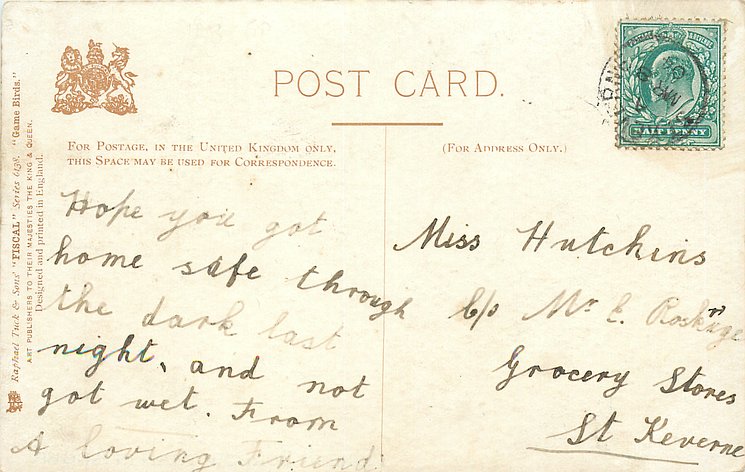 Raphael Tuck & Sons' "FISCAL" Series 6138. "Game Birds."
ART PUBLISHERS TO THEIR MAJESTIES THE KING & QUEEN.
Designed and printed in England.
POST CARD.
FOR POSTAGE, IN THE UNITED KINGDOM ONLY,
THIS SPACE MAY BE USED FOR CORRESPONDENCE.
(FOR ADDRESS ONLY.)
HALF PENNY
Hope you got
home safe through
the dark last
night, and not
got wet. From
A loving Friend
Miss Hutchins
C/o Mr E.
Grocery Stores
St Keverne